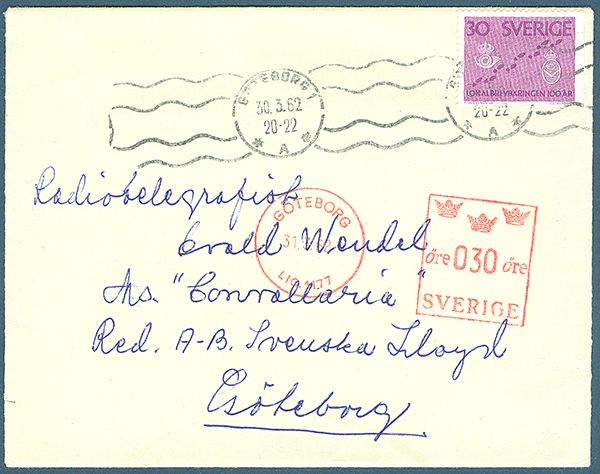 30 SVERIGE
LOKALBREVBÄRINGEN 100 ÅR
GÖTEBORG 1
30.3.62
20-22
* A *
20-22
* A *
Radiotelegrafist
GÖTEBORG
Evald Wendel
31.
LIC.1177
öre 030 öre
SVERIGE
Ms. "Convallaria"
Red. A-B. Svenska Lloyd
Göteborg.